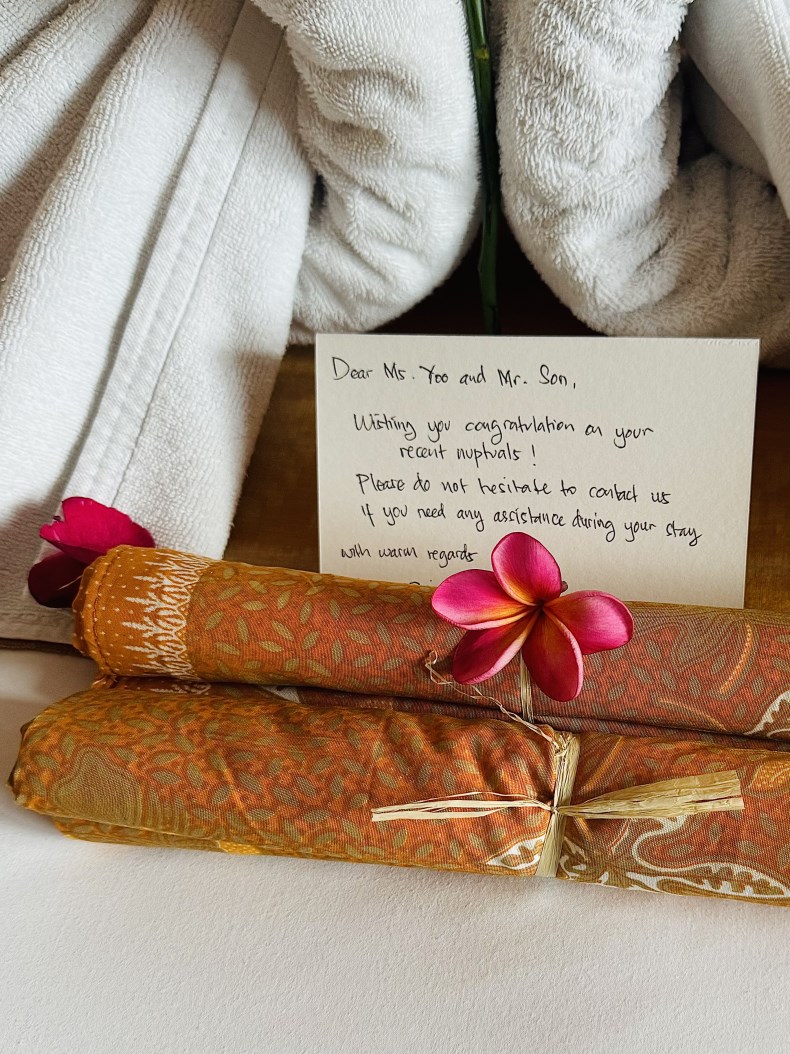 Dear Ms. Yoo and Mr. Son,
Wishing you congratulation on your
recent nuptuals!
Please do not hesitate to contact us
If you need any assistance during your stay
with warm regards